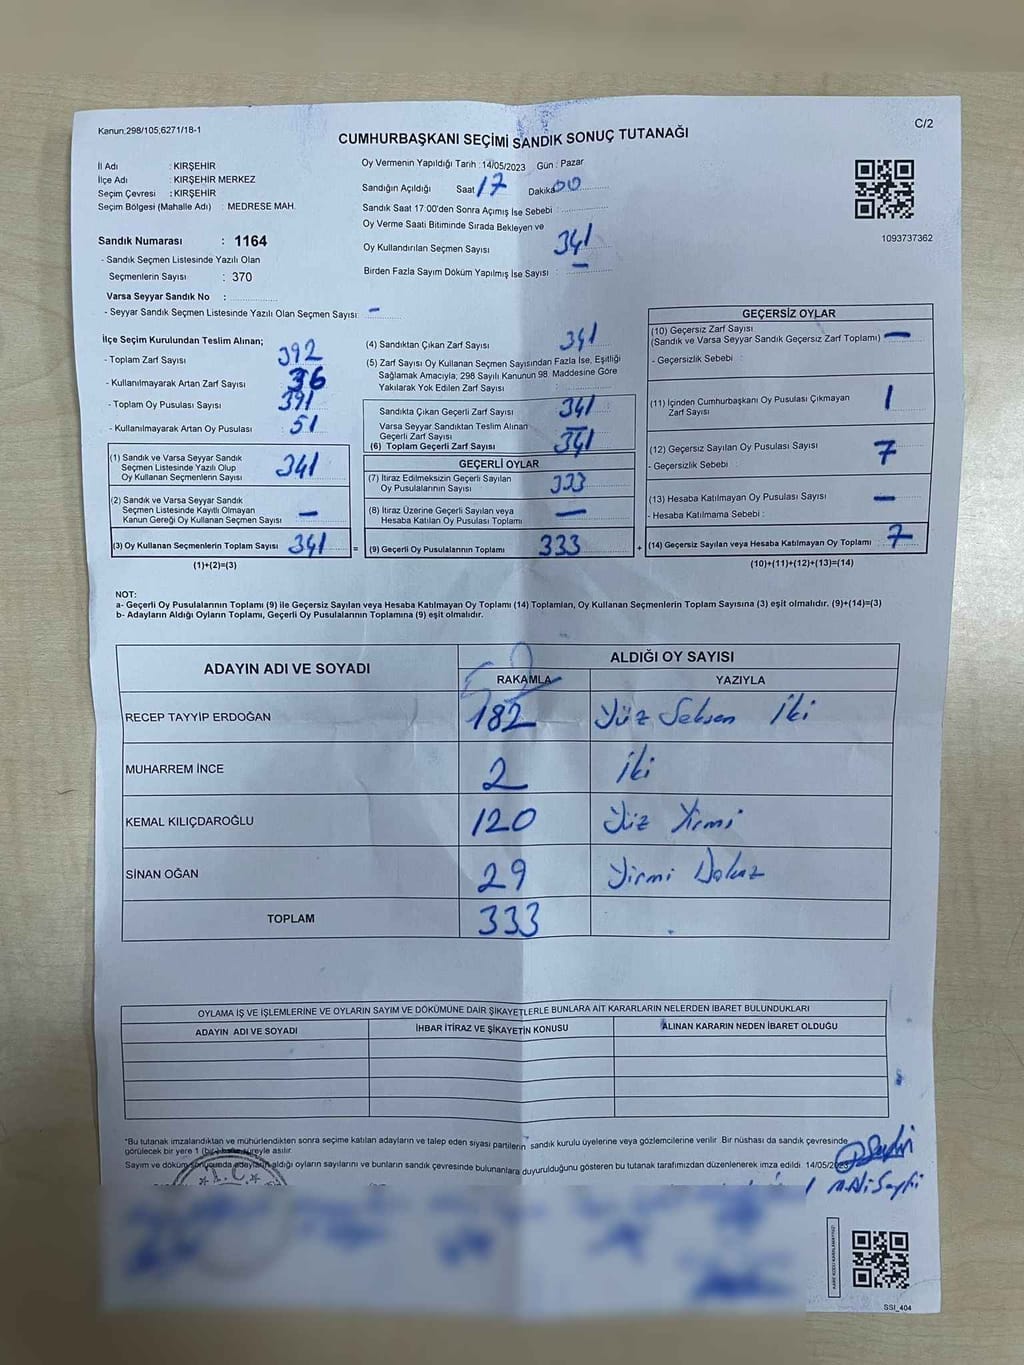 Kanun;298/105;6271/18-1
C/2
CUMHURBAŞKANI SEÇİMİ SANDIK SONUÇ TUTANAĞI
İl Adı : KIRŞEHİR
İlçe Adı : KIRŞEHİR MERKEZ
Seçim Çevresi : KIRŞEHİR
Seçim Bölgesi (Mahalle Adı) : MEDRESE MAH.
Oy Vermenin Yapıldığı Tarih : 14/05/2023 Gün : Pazar
Sandığın Açıldığı Saat 17 Dakika 00
Sandık Saat 17:00'den Sonra Açımış İse Sebebi :
Oy Verme Saati Bitiminde Sırada Bekleyen ve
Oy Kullandırılan Seçmen Sayısı 341
Birden Fazla Sayım Döküm Yapılmış İse Sayısı : -
1093737362
Sandık Numarası : 1164
- Sandık Seçmen Listesinde Yazılı Olan
Seçmenlerin Sayısı : 370
Varsa Seyyar Sandık No :
- Seyyar Sandık Seçmen Listesinde Yazılı Olan Seçmen Sayısı: -
İlçe Seçim Kurulundan Teslim Alınan;
- Toplam Zarf Sayısı 392
- Kullanılmayarak Artan Zarf Sayısı 36
- Toplam Oy Pusulası Sayısı 391
- Kullanılmayarak Artan Oy Pusulası 51
(1) Sandık ve Varsa Seyyar Sandık
Seçmen Listesinde Yazılı Olup
Oy Kullanan Seçmenlerin Sayısı 341
(2) Sandık ve Varsa Seyyar Sandık
Seçmen Listesinde Kayıtlı Olmayan
Kanun Gereği Oy Kullanan Seçmen Sayısı -
(3) Oy Kullanan Seçmenlerin Toplam Sayısı 341 =
(1)+(2)=(3)
(4) Sandıktan Çıkan Zarf Sayısı 341
(5) Zarf Sayısı Oy Kullanan Seçmen Sayısından Fazla İse, Eşitliği
Sağlamak Amacıyla; 298 Sayılı Kanunun 98. Maddesine Göre
Yakılarak Yok Edilen Zarf Sayısı :
Sandıkta Çıkan Geçerli Zarf Sayısı 341
Varsa Seyyar Sandıktan Teslim Alınan
Geçerli Zarf Sayısı -
(6) Toplam Geçerli Zarf Sayısı 341
GEÇERLİ OYLAR
(7) İtiraz Edilmeksizin Geçerli Sayılan
Oy Pusulalarının Sayısı 333
(8) İtiraz Üzerine Geçerli Sayılan veya
Hesaba Katılan Oy Pusulası Toplamı -
(9) Geçerli Oy Pusulalarının Toplamı 333 +
GEÇERSİZ OYLAR
(10) Geçersiz Zarf Sayısı
(Sandık ve Varsa Seyyar Sandık Geçersiz Zarf Toplamı) -
- Geçersizlik Sebebi :
(11) İçinden Cumhurbaşkanı Oy Pusulası Çıkmayan
Zarf Sayısı 1
(12) Geçersiz Sayılan Oy Pusulası Sayısı 7
- Geçersizlik Sebebi :
(13) Hesaba Katılmayan Oy Pusulası Sayısı -
- Hesaba Katılmama Sebebi :
(14) Geçersiz Sayılan veya Hesaba Katılmayan Oy Toplamı : 7
(10)+(11)+(12)+(13)=(14)
NOT:
a- Geçerli Oy Pusulalarının Toplamı (9) ile Geçersiz Sayılan veya Hesaba Katılmayan Oy Toplamı (14) Toplamları, Oy Kullanan Seçmenlerin Toplam Sayısına (3) eşit olmalıdır. (9)+(14)=(3)
b- Adayların Aldığı Oyların Toplamı, Geçerli Oy Pusulalarının Toplamına (9) eşit olmalıdır.
ADAYIN ADI VE SOYADI
ALDIĞI OY SAYISI
RAKAMLA YAZIYLA
RECEP TAYYİP ERDOĞAN 182 Yüz Seksen İki
MUHARREM İNCE 2 İki
KEMAL KILIÇDAROĞLU 120 Yüz Yirmi
SİNAN OĞAN 29 Yirmi Dokuz
TOPLAM 333
OYLAMA İŞ VE İŞLEMLERİNE VE OYLARIN SAYIM VE DÖKÜMÜNE DAİR ŞİKAYETLERLE BUNLARA AİT KARARLARIN NELERDEN İBARET BULUNDUKLARI
ADAYIN ADI VE SOYADI İHBAR İTİRAZ VE ŞİKAYETİN KONUSU ALINAN KARARIN NEDEN İBARET OLDUĞU
*Bu tutanak imzalandıktan ve mühürlendikten sonra seçime katılan adayların ve talep eden siyasi partilerin sandık kurulu üyelerine veya gözlemcilerine verilir. Bir nüshası da sandık çevresinde
görülecek bir yere 1 (bir) hafta süreyle asılır.
Sayım ve döküm sonucunda adayların aldığı oyların sayılarını ve bunların sandık çevresinde bulunanlara duyurulduğunu gösteren bu tutanak tarafımızdan düzenlenerek imza edildi. 14/05/2023
T.C.
SSİ_404